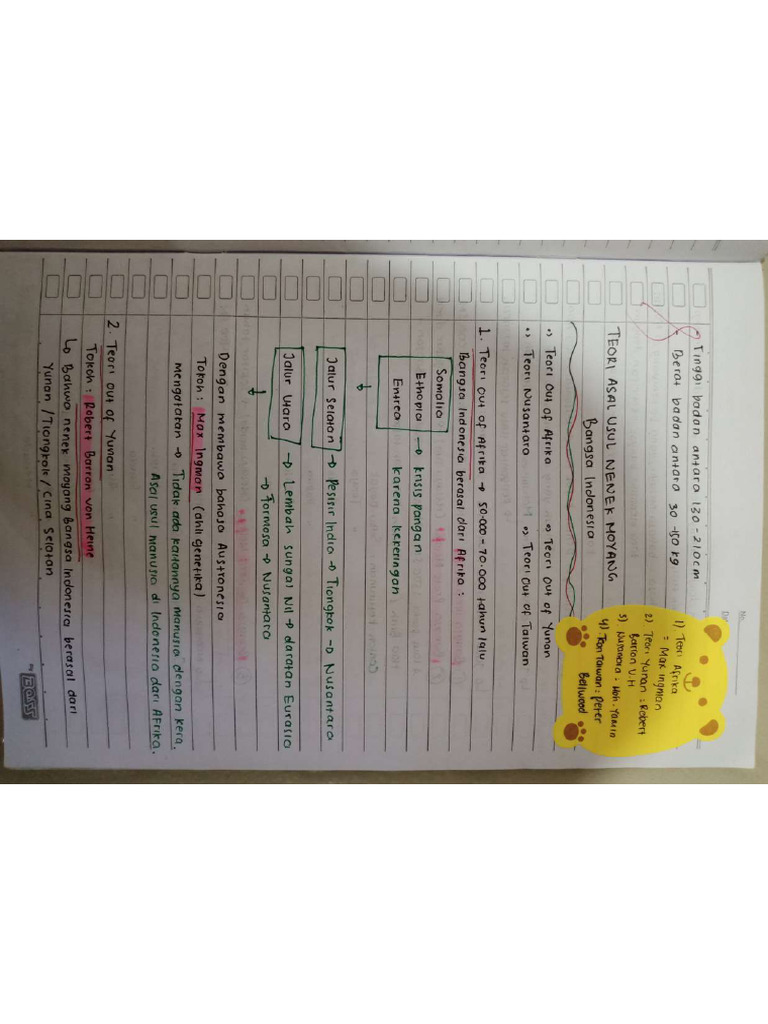 No.
- Tinggi badan antara 130 - 210 cm
- Berat badan antara 30 - 150 kg
TEORI ASAL USUL NENEK MOYANG
Bangsa Indonesia
•) Teori Out of Afrika •) Teori Out of Yunan
•) Teori Nusantara •) Teori Out of Taiwan
1) Teori Afrika
= Max Ingman
2) Teori Yunan : Robert
Barron V.H
3) Nusantara : Moh. Yamin
4) Taiwan : Peter
Bellwood
1. Teori Out of Afrika → 50.000 - 70.000 tahun lalu
Bangsa Indonesia berasal dari Afrika :
Somalia
Ethopia → krisis pangan
Entrea karena kekeringan
↓
Jalur Selatan → Pesisir India → Tiongkok → Nusantara
Jalur Utara → Lembah sungai Nil → daratan Eurasia
↓ → Formosa → Nusantara
Dengan membawa bahasa Austronesia
Tokoh : Max Ingman (ahli genetika)
mengatakan → Tidak ada kaitannya manusia dengan kera.
Asal usul manusia di Indonesia dari Afrika.
2. Teori Out of Yunan
Tokoh : Robert Barran von Heine
↳ Bahwa nenek moyang Bangsa Indonesia berasal dari
Yunan / Tiongkok / Cina Selatan